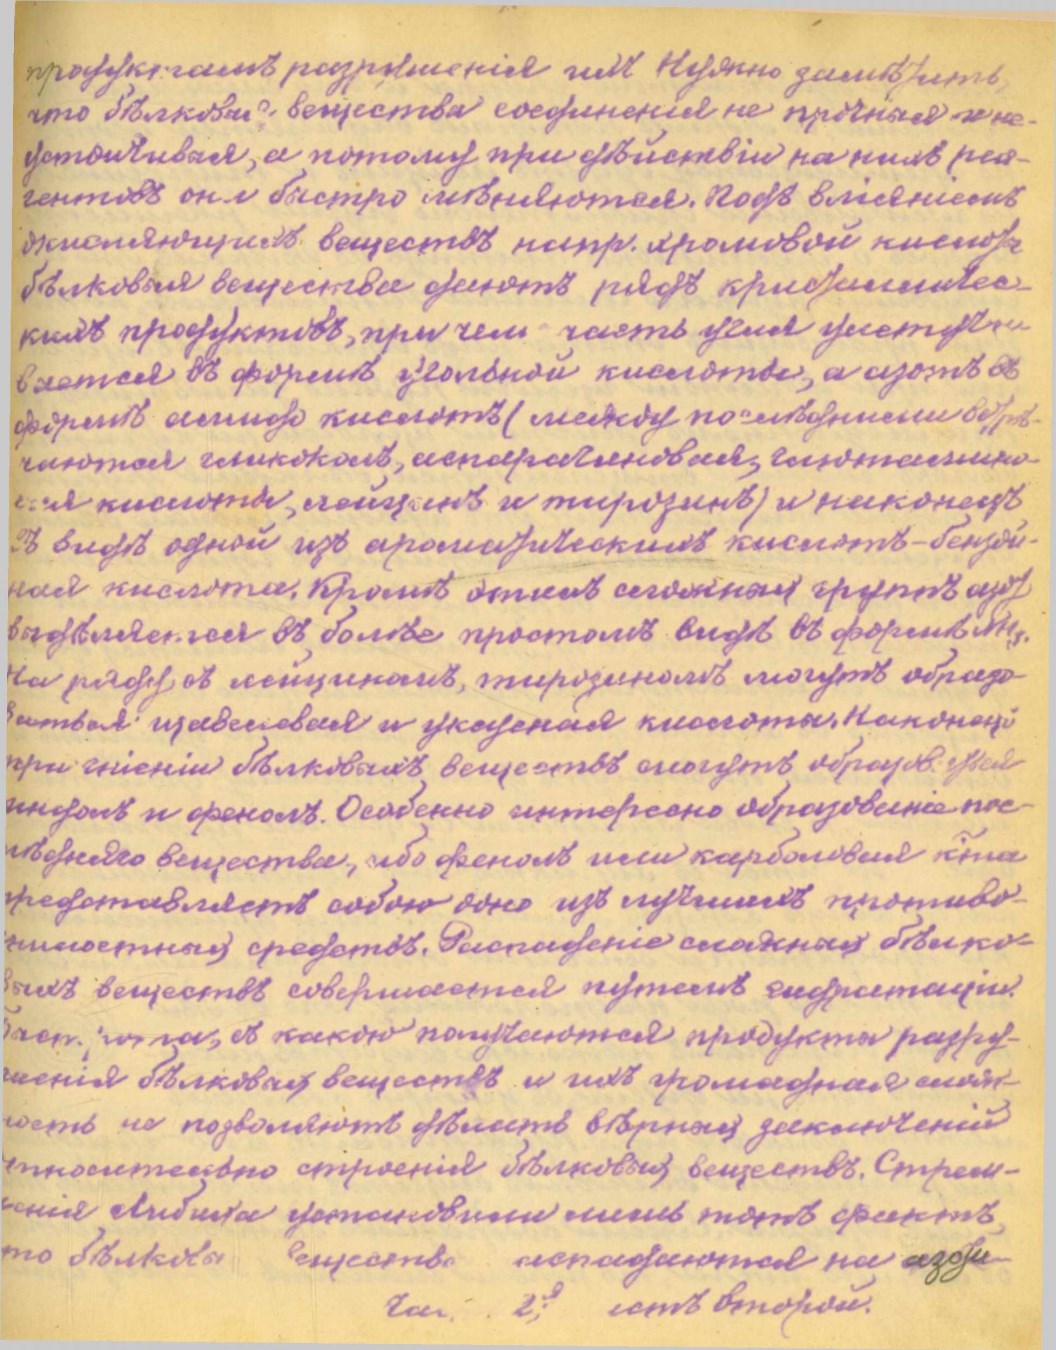 продуктамъ разрушенія ихъ Нужно замѣтить,
что бѣлковыя вещества соединенія не прочныя и не-
устойчивыя, а потому при дѣйствіи на нихъ реа-
гентовъ они быстро мѣняются. Подъ вліяніемъ
окисляющихъ веществъ напр. хромовой кислоты
бѣлковыя вещества даютъ рядъ кристалличес-
кихъ продуктовъ, при чемъ часть угля
вается въ формѣ угольной кислоты, а азотъ въ
формѣ амидо кислотъ (между последними встрѣ-
чаются гликоколь, аспарагиновая, глютамино-
вая кислоты, лейцинъ и тирозинъ) и наконецъ
въ видѣ одной изъ ароматическихъ кислотъ-бензой-
ная кислота. Кромѣ этихъ сложныхъ группъ азотъ
выдѣляется въ болѣе простомъ видѣ въ формѣ NH₃.
На ряду съ лейциномъ, тирозиномъ могутъ образо-
ваться щавелевая и уксусная кислоты. Наконецъ
при гніеніи бѣлковыхъ веществъ могутъ образов.
индолъ и фенолъ. Особенно интересно образованіе пос-
лѣдняго вещества, ибо фенолъ или карболовая к-та
представляетъ собою одно изъ лучшихъ противо-
гнилостныхъ средствъ. Распаденіе сложныхъ бѣлко-
выхъ веществъ совершается путемъ гидратаціи.
Быстрота, съ какою получаются продукты разру-
шенія бѣлковыхъ веществъ и ихъ громадная слож-
ность не позволяютъ дѣлать вѣрныхъ заключеній
относительно строенія бѣлковыхъ веществъ. Стрем-
ленія Либиха установили лишь тотъ фактъ,
что бѣлковы вещества распадаются на
2я листъ второй.